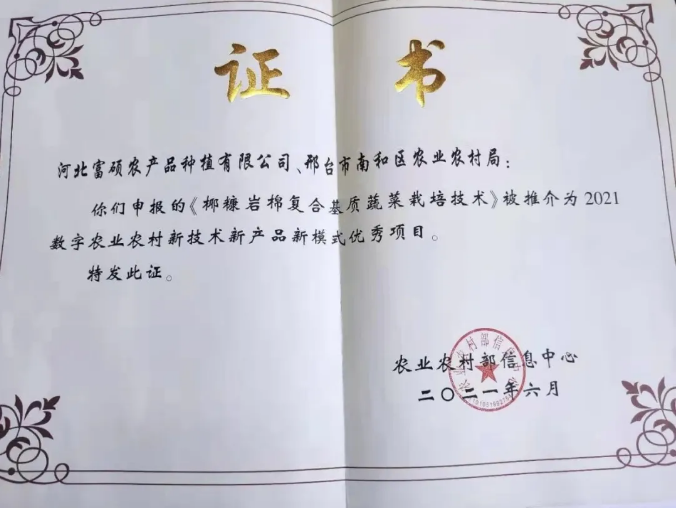 证书
河北富硕农产品种植有限公司、邢台市南和区农业农村局：
你们申报的《椰糠岩棉复合基质蔬菜栽培技术》被推介为2021
数字农业农村新技术新产品新模式优秀项目。
特发此证。
农业农村部信息中心
二〇二一年六月